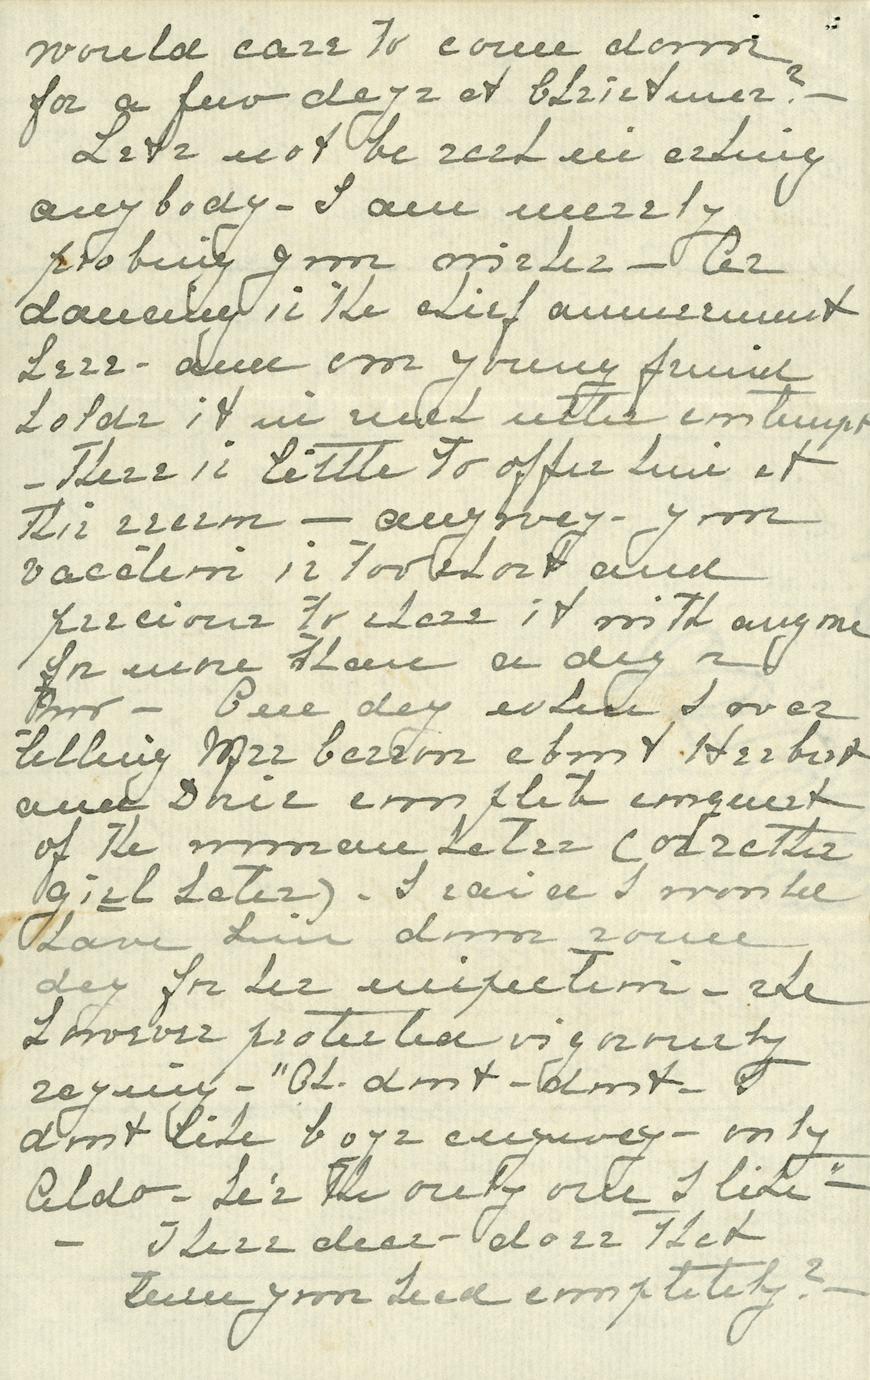 would care to come down
for a few days at Christmas? —
Let's not be rash in asking
anybody - I am merely
probing your wishes — As
dancing is the chief amusement
here - and our young friend
holds it in such utter contempt
- There is little to offer him at
this season — anyway - your
vacation is too short and
precious to share it with anyone
for more than a day or
two - One day when I was
telling Mrs Casson about Herbert
and Doris complete conquest
of the woman hater (or rather
girl hater) - I said I would
have him down some
day for her inspection - she
however protested vigorously
saying - "Oh - don't - don't - I
don't like boys anyway - only
Aldo - he's the only one I like" —
- There dear - does that
turn your head completely? —